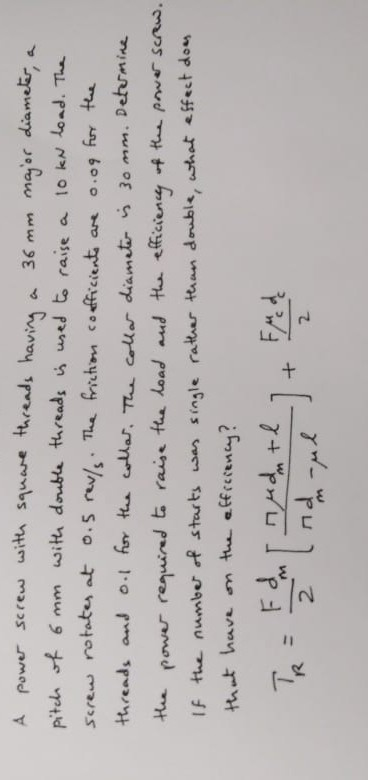 A power screw with square threads having a 36 mm major diameter, a
pitch of 6 mm with double threads is used to raise a 10 kN load. The
screw rotates at 0.5 rev/s. The friction coefficients are 0.09 for the
threads and 0.1 for the collar. The collar diameter is 30 mm. Determine
the power required to raise the load and the efficiency of the power screw.
If the number of starts was single rather than double, what effect does
that have on the efficiency?
T_R = F d_m / 2 [ (π μ d_m + l) / (π d_m - μ l) ] + F μ_c d_c / 2